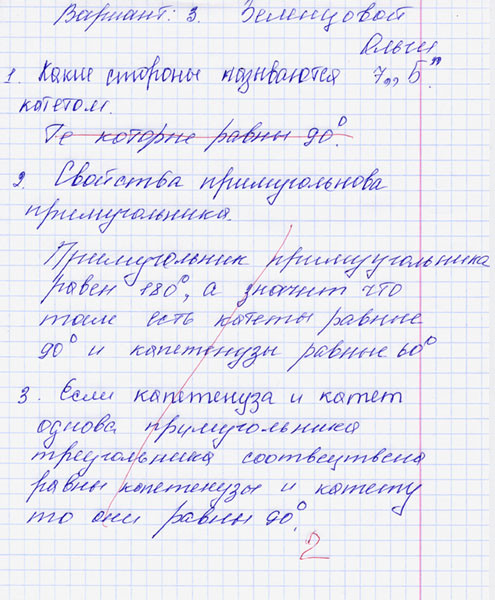 Вариант: 3. Зеленцовой
Ольги
1. Какие стороны называются 7„Б"
катетом.
Те которые равны 90°.
2. Свойства примугольнова
примугольника.
Примугольник примуугольника
равен 180°, а значит что
там есть катеты равные
90° и капетенузы равные 60°
3. Если капетенуза и катет
однова примугольника
треугольника соотвеиствена
равны капетенузы и катету
то они равны 90°.
2